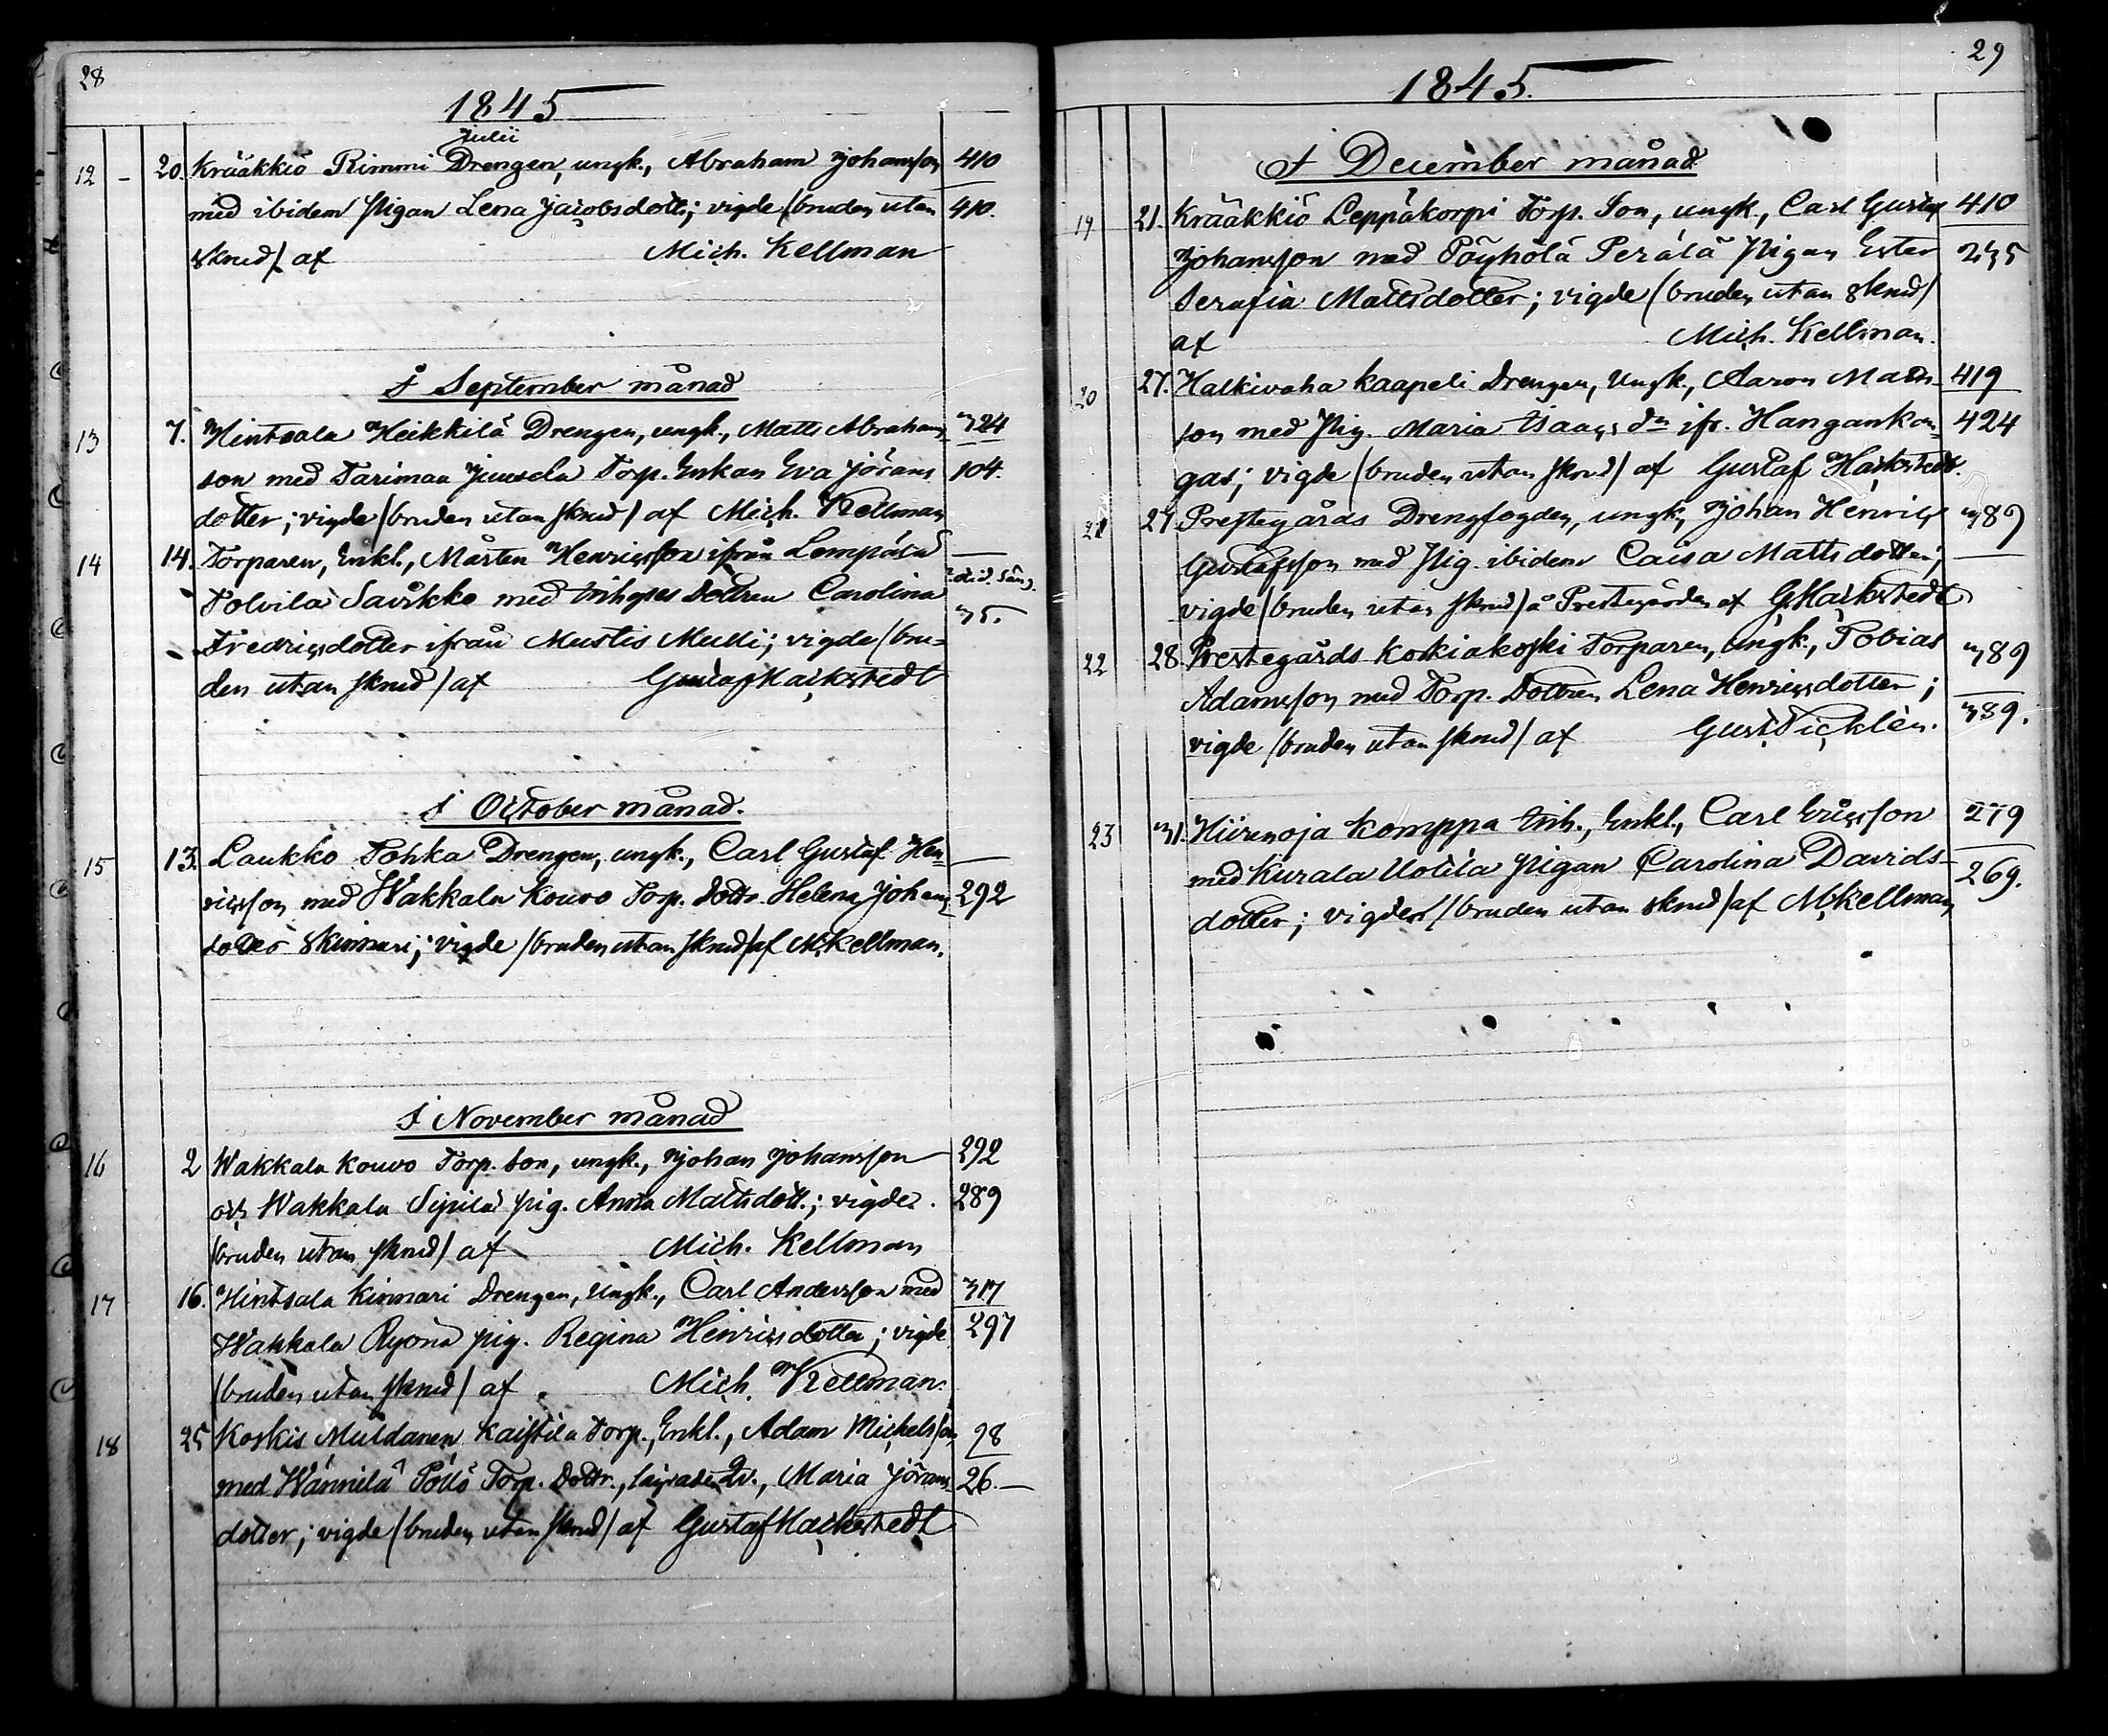 28
1845
Julii
12 - 20. Krääkkiö Rimmi Drengen, ungk., Abraham Johansson 410
med ibidem Pigan Lena Jacobsdott.; vigde (bruden utan 410.
skrud) af Mich. Kellman
I September månad
13 7. Hintsala Heikkilä Drengen, ungk., Matts Abrahams 324
son med Tarimaa Juusela Torp. Enkan Eva Jörans 104.
dotter; vigde (bruden utan skrud) af Mich. Kellman
14 14. Torparen, Enkl., Mårten Henricsson ifrån Lempäälä —
Tolvila Savikko med Inhyses Dottren Carolina
Fredricsdotter ifrån Mustis Mulli; vigde (bru= 35.
den utan skrud) af Gustaf Hackstedt
I October månad.
15 13. Laukko Tohka Drengen, ungk., Carl Gustaf Hen —
ricsson med Wakkala Kouvo Torp. Dottr. Helena Johans 292
Kinnari; vigde (bruden utan skrud) af M. Kellman.
I November månad
16 2 Wakkala Kouvo Torp. Son, ungk., Johan Johansson 292
och Wakkala Sipilä pig. Anna Mattsdott.; vigde 289
(bruden utan skrud) af Mich. Kellman
17 16. Hintsala Kinnari Drengen, Ungk., Carl Andersson med 317
Wakkala Ryönä pig. Regina Henricsdotter; vigde 297
(bruden utan skrud) af Mich. Kellman.
18 25 Koskis Muldanen Kaistila Torp., Enkl., Adam Michelsson 28
med Wännilä Pöllö Torp. Dottr., lägrade Qv., Maria Jörans 26.—
dotter; vigde (bruden utan skrud) af Gustaf Hackstedt
29
1845.
I December månad
19 21. Krääkkiö Leppäkorpi Torp. Son, ungk., Carl Gustaf 410
Johansson med Pöyhölä Perälä Pigan Ester 235
Serafia Mattsdotter; vigde (bruden utan skrud)
af Mich. Kellman.
20 27. Halkivaha Kaapeli Drengen, Ungk., Aaron Matts- 419
son med Pig. Maria Isaacs dr ifr. Hangankan= 424
gas; vigde (bruden utan skrud) af Gustaf Hackstedt.
21 27 Prestegårds Drengfogden, ungk, Johan Henric 389
Gustafsson med Pig. ibidem Caisa Mattsdotter; —
vigde (bruden utan skrud) å Prestegården af G. Hackstedt
22 28. Prestegårds Koskiakoski Torparen, Ungk., Tobias 389
Adamsson med Torp. Dottren Lena Henricsdotter; 389.
vigde (bruden utan skrud) af Gust. Ticklén.
23 31. Hiirenoja Komppa Inh., Enkl., Carl Ericsson 279
med Kurala Uotila Pigan Carolina Davids- 269.
dotter; vigde (bruden utan skrud) af M. Kellman